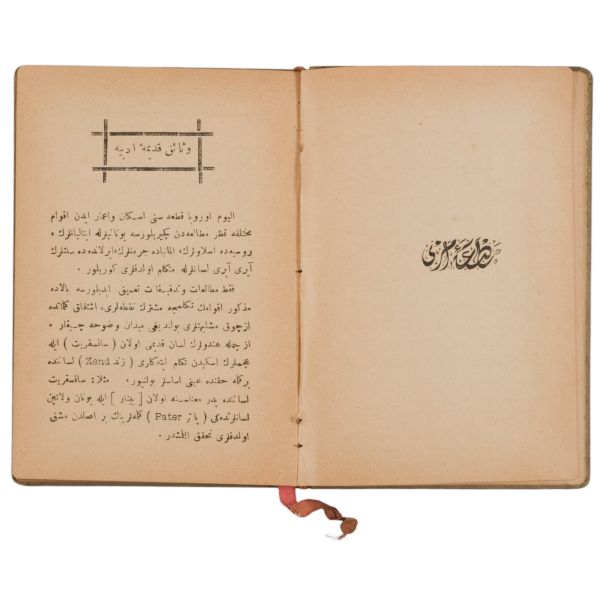 وثائق قدیمهٔ ادبیه
الیوم اوروپا قطعه سنی اسکان واعمار ایدن اقوام
مختلفه نظر مطالعه‌دن کچیریلورسه یونانیلرله ایتالیانلرك ،
روسیه‌ده اسلاولرك، المانیاده جرمنلرك، ایرلانده‌ده سلتلرك
آیری آیری لسانلرله متکلم اولدقلری کوریلور .
فقط مطالعات وتدقیقات تعمیق ایدیلورسه بالاده
مذکور اقوامك تکلمجه مشترك نقطه‌لری، اشتقاق کلماتده
ازچوق مشابهتلری بولندیغی میدان وضوحه چیقار .
از جمله هندولرك لسان قدیمی اولان ( سانسقریت ) ایله
عجملرك اسکیدن تکلم ایتدکلری ( زند Zend ) لساننده
برکله حقنده عینی اساسلر بولنیور . مثلا : سانسقریت
لساننده پدر معناسنه اولان [ پیتار ] ایله یونان ولاتین
لسانلرنده‌کی ( پاتر Pater ) کله‌لرینك بر اصلدن مشتق
اولدقلری تحقق ایتمشدر .